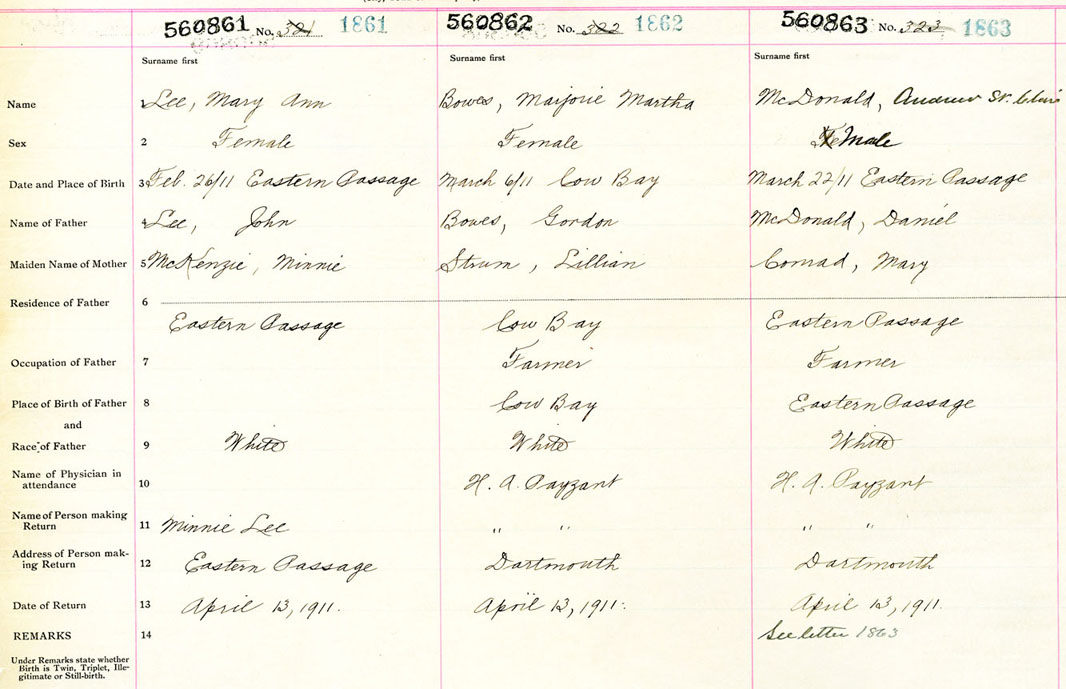 560861 No. 321 1861 560862 No. 322 1862 560863 No. 323 1863
Surname first Surname first Surname first
Name 1 Lee, Mary Ann Bowes, Marjorie Martha McDonald, Andrew St. Clair
Sex 2 Female Female Female Male
Date and Place of Birth 3 Feb. 26/11 Eastern Passage March 6/11 Cow Bay March 22/11 Eastern Passage
Name of Father 4 Lee, John Bowes, Gordon McDonald, Daniel
Maiden Name of Mother 5 McKenzie, Minnie Strum, Lillian Conrad, Mary
Residence of Father 6
Eastern Passage Cow Bay Eastern Passage
Occupation of Father 7 Farmer Farmer
Place of Birth of Father 8 Cow Bay Eastern Passage
and
Race of Father 9 White White White
Name of Physician in
attendance 10 H. A. Payzant H. A. Payzant
Name of Person making
Return 11 Minnie Lee " " " "
Address of Person mak-
ing Return 12 Eastern Passage Dartmouth Dartmouth
Date of Return 13 April 13, 1911. April 13, 1911. April 13, 1911.
REMARKS 14 See letter 1863
Under Remarks state whether
Birth is Twin, Triplet, Ille-
gitimate or Still-birth.